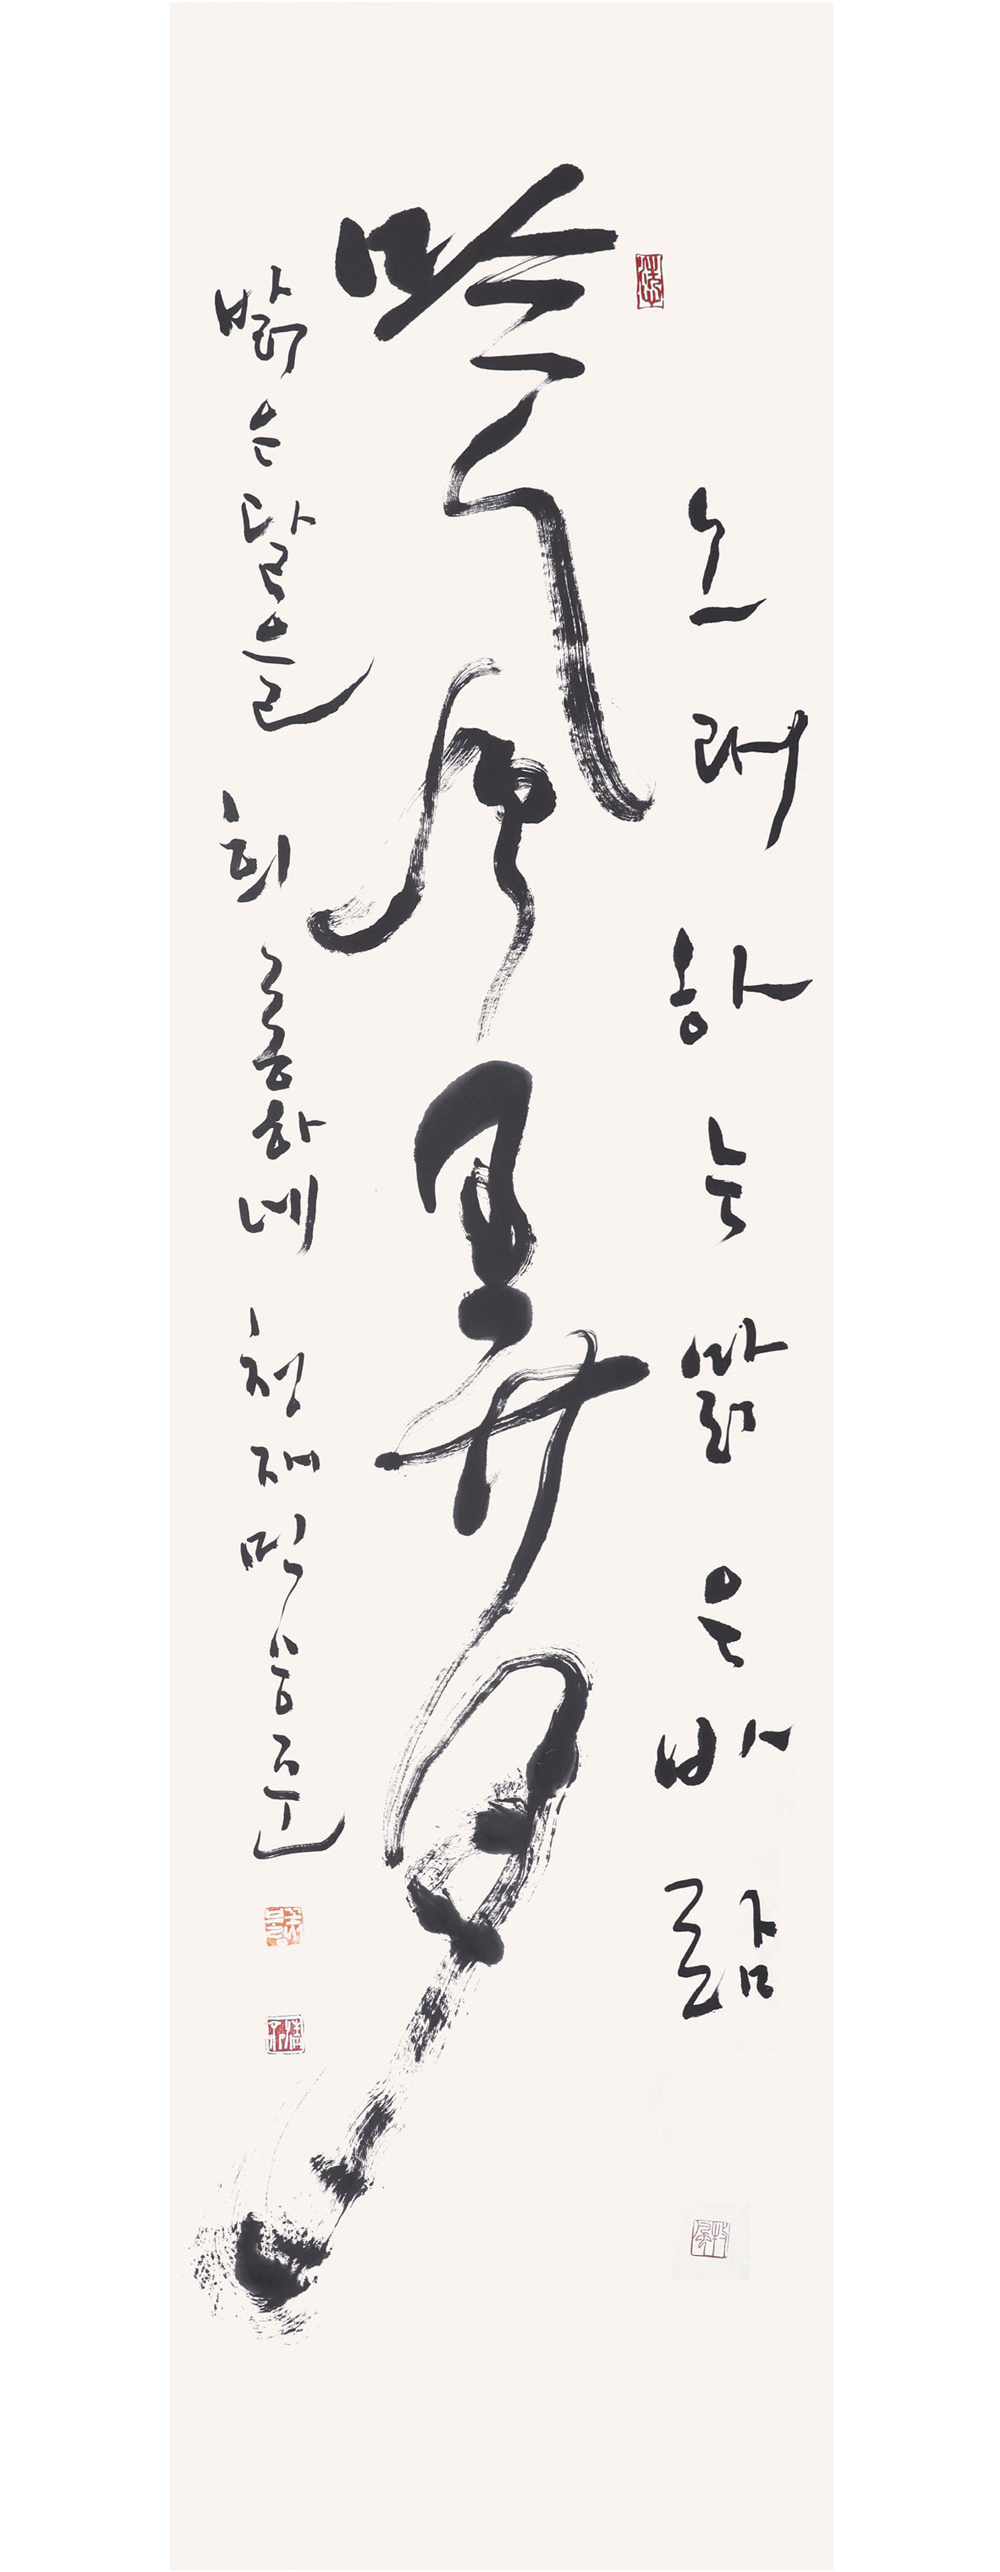 노래하는 맑은 바람
吟風弄月
밝은 달을 희롱하네 청재 민승준